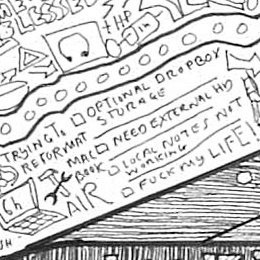 +HP
TRYING To
REFORMAT
MAC
BOOK
AIR
OPTIONAL DROPBOX
STORAGE
NEED EXTERNAL HD
LOCAL NOTES NOT
WORKING
FUCK MY LIFE!